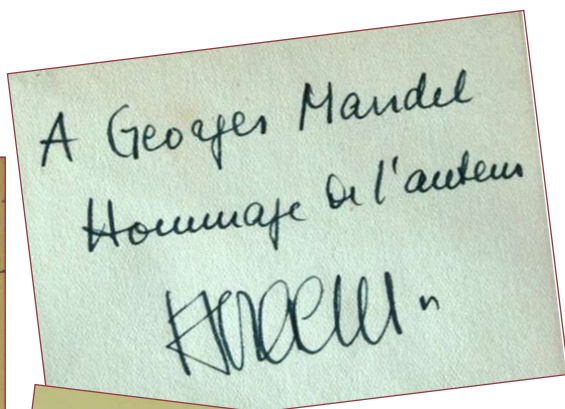 A Georges Mandel
Hommage de l'auteur